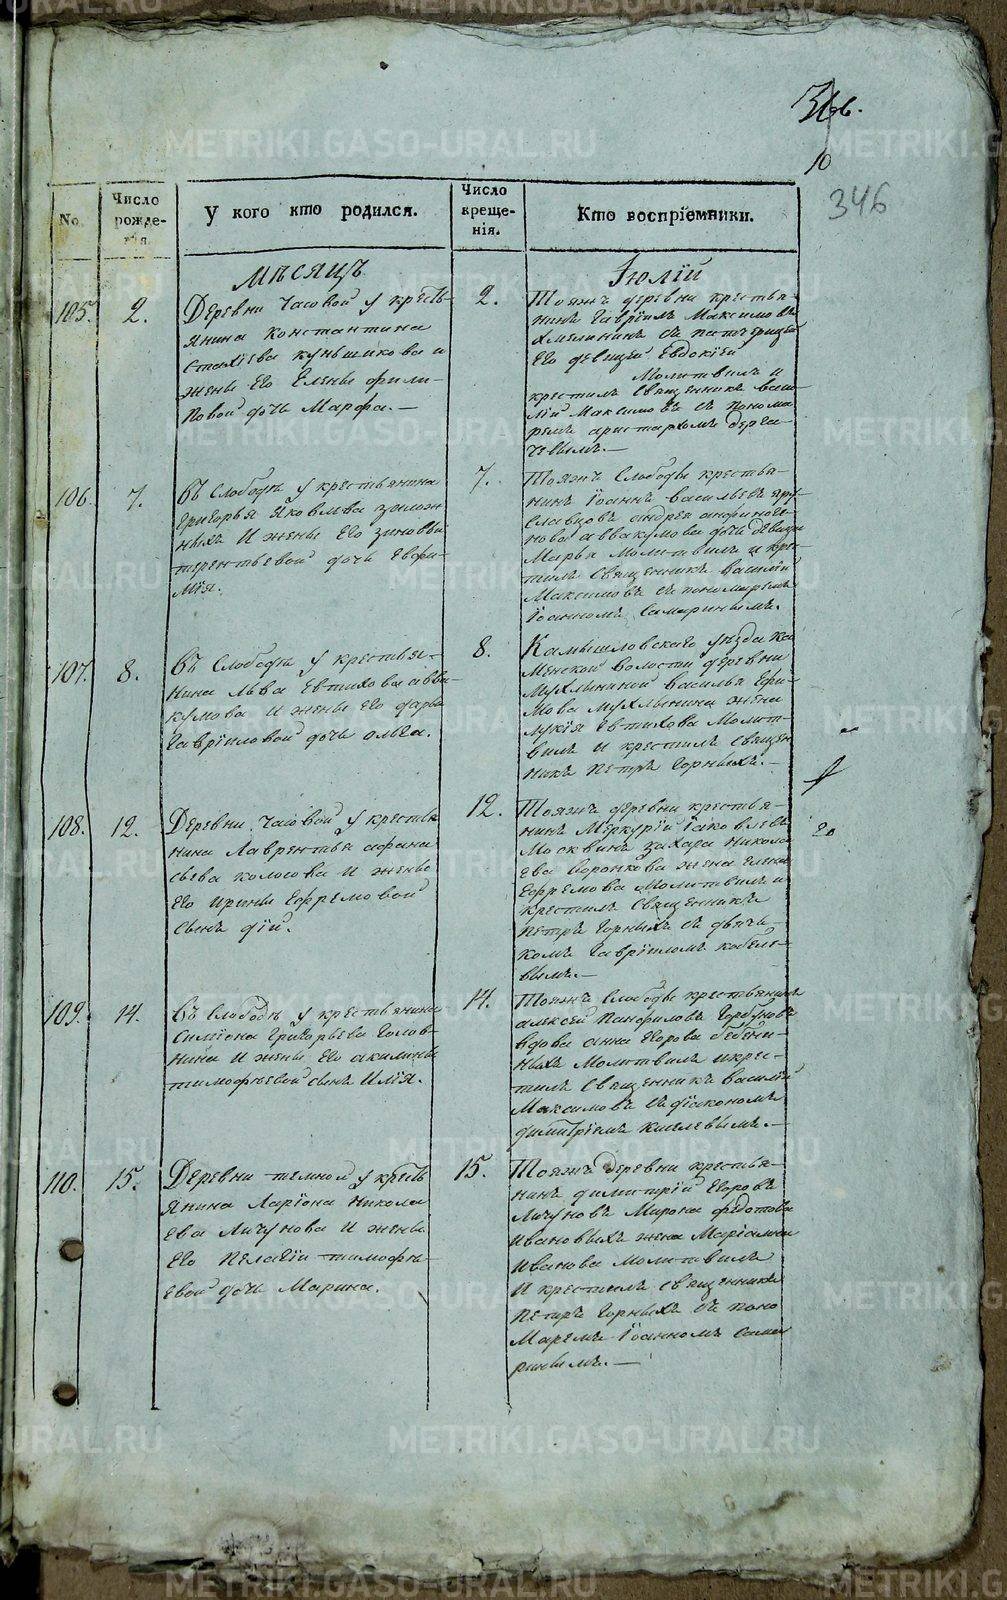 346
10
346
No.
Число рожде-нія.
У кого кто родился.
Число креще-нія.
Кто воспріемники.
Мѣсяцъ
Іюлій
105.
2.
Деревни Часовой у кресть-
янина Константина
Стахіева Куньшикова и
жены Его Елены фили-
повой дочь Марфа.—
2.
Тояжъ деревни крестья-
нинъ Гавріилъ Максимовъ
Хмелининъ съ падчерицей
Его девицей Евдокіей
Молитвилъ и
крестилъ Священникъ Васи-
лій Максимовъ съ понома-
ремъ аристархомъ Дерга-
чевымъ.—
106.
7.
Въ Слободѣ у крестьянина
Григорья Яковлева
и жены Его Зиновьи
терентьевой дочь Евфи-
мія.
7.
Тояжъ Слободы крестья-
нинъ Іоаннъ Васильевъ Яру-
славцовъ андрея
аввакумова дочь девица
Марья Молитвилъ и кре-
тилъ Священникъ Василій
Максимовъ съ пономаремъ
Іоанномъ Самаринымъ.
107.
8.
Въ Слободѣ у крестья-
нина Льва Евтихова авва-
кумова и жены Его дарьи
Гавріиловой дочь ольга.
8.
Камышловскаго уѣзда ка
менской волости деревни
Мухлыниной Василья Ефи-
мова мухлынина жена
лукія Евтихова Молит-
вилъ и крестилъ Священ
никъ Петръ Горныхъ.—
108.
12.
Деревни Часовой у крестья
нина Лаврентья афана
сьева колосова и жены
Его Ирины Ефремовой
сынъ дій.
12.
Тояжъ деревни крестья-
нинъ Меркурій Іаковлевъ
Москвинъ захара Никола
ева Воронкова жена Елена
Ефремова Молитвилъ и
крестилъ Священникъ
Петръ Горныхъ съ дьяч-
комъ Гавріиломъ кобеле-
вымъ.—
109.
14.
Въ Слободѣ у крестьянина
Симіона Григорьева Голов-
нина и жены Его акилины
тимофѣевой сынъ Илія.
14.
Тояжъ Слободы крестьянинъ
алексей Панфиловъ Горбуновъ
вдова анна Егорова бебени-
ныхъ Молитвилъ икрес-
тилъ Священникъ Василій
Максимовъ съ діакономъ
димитріемъ киселевымъ.—
110.
15.
Деревни темной у кресть
янина Ларіона Никола
ева Личунова и жены
Его Пелагіи тимофѣ-
евой дочь Марина.
15.
Тояжъ деревни крестья-
нинъ димитрій Егоровъ
Личуновъ Мирона федотова
Ивановыхъ жена Маріамна
Иванова Молитвилъ
и крестилъ священникъ
Петръ Горныхъ съ поно
Маремъ Іоанномъ Сама
ринымъ.—
METRIKI.GASO-URAL.RU